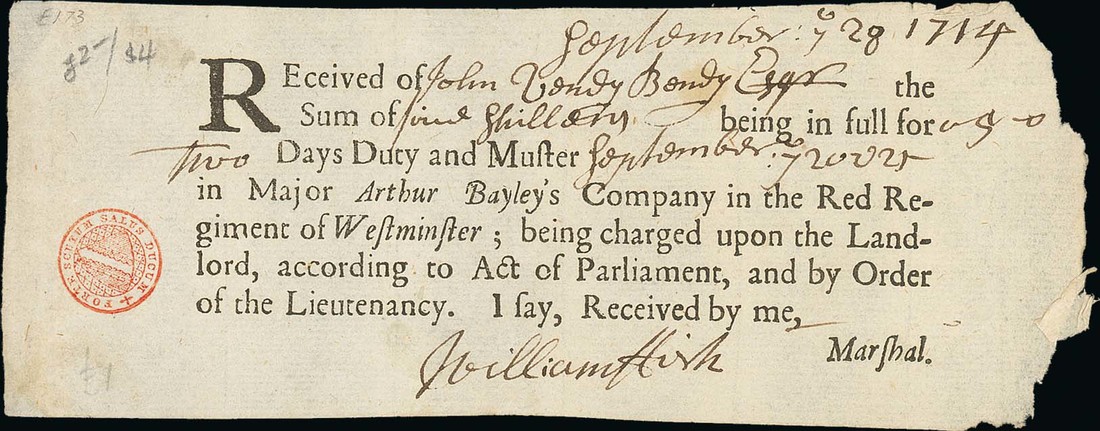 E173
82-/84
September: ye 28 1714
REceived of John Vendy Bendy Esqr the
Sum of five Shillens being in full for
Two Days Duty and Muſter September: ye 20
in Major Arthur Bayley's Company in the Red Re-
giment of Weſtminſter; being charged upon the Land-
lord, according to Act of Parliament, and by Order
of the Lieutenancy. I ſay, Received by me,
William Hirk Marſhal.
FORTE SCUTUM SALUS DUCUM